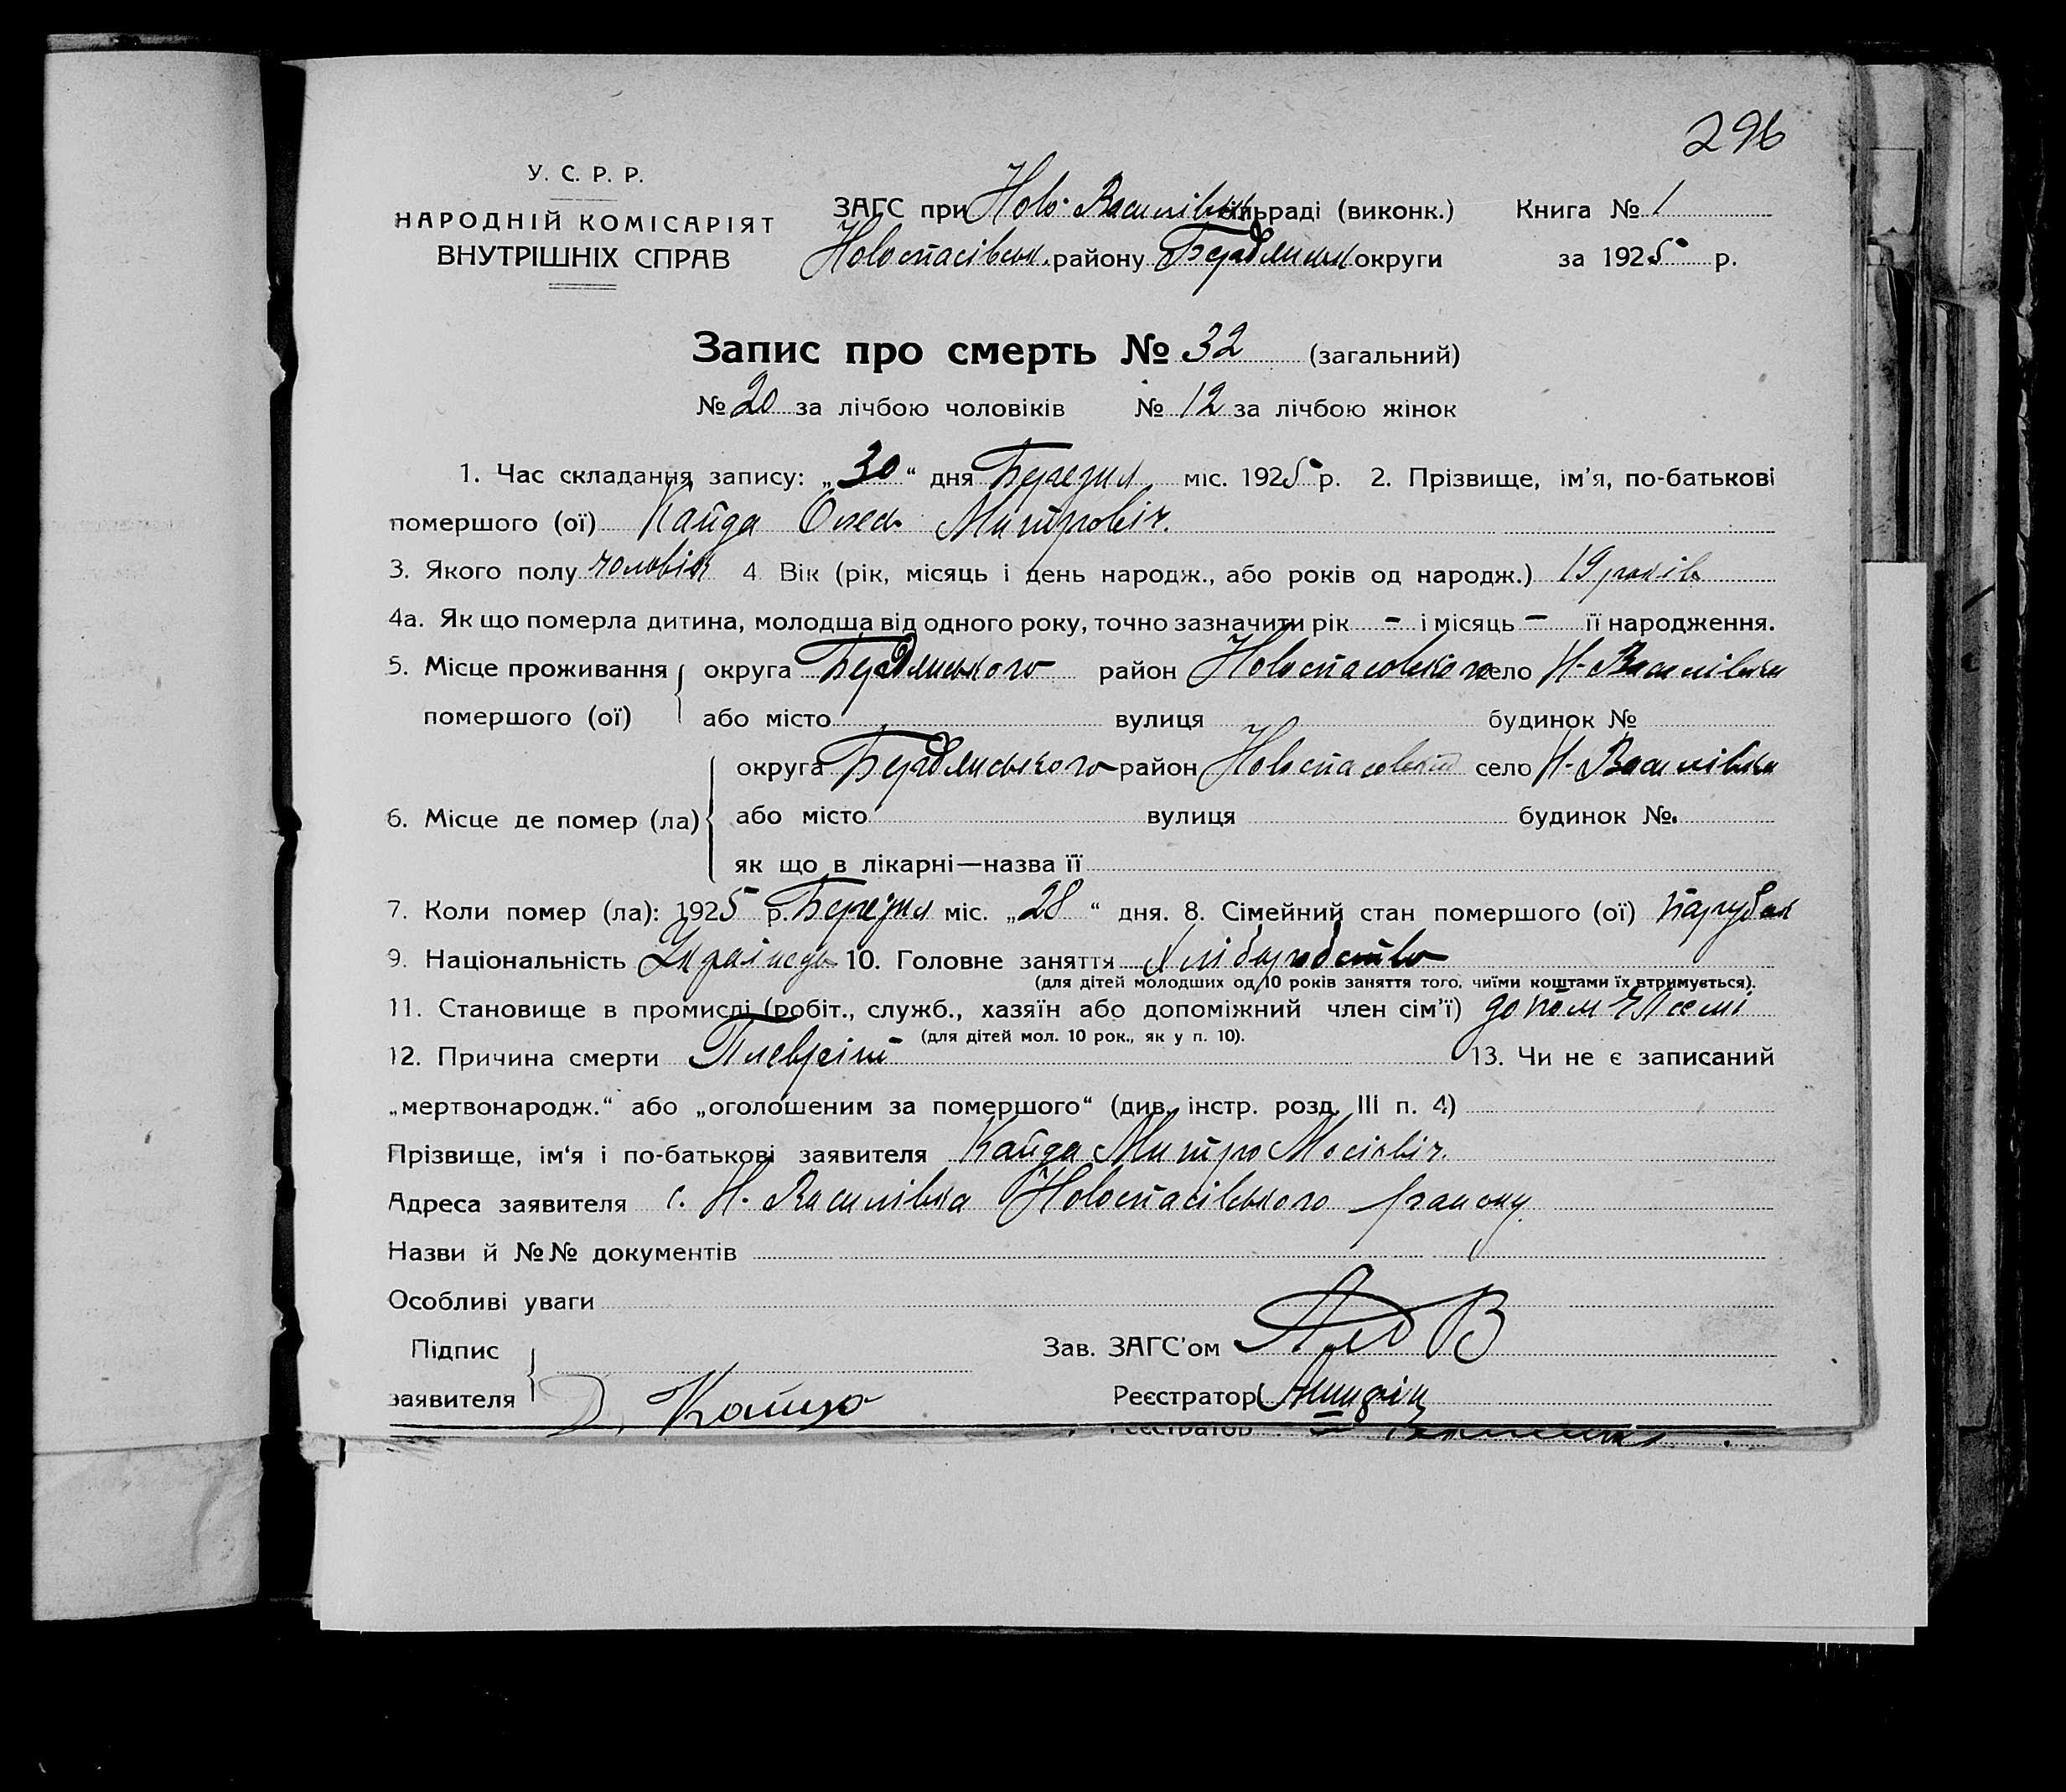 296
У. С. Р. Р.
НАРОДНІЙ КОМІСАРІЯТ
ВНУТРІШНІХ СПРАВ
ЗАГС при Ново-Василівськ сільраді (виконк.) Книга № 1
Новоспасівськ. району Бердянськ округи за 1925 р.
Запис про смерть № 32 (загальний)
№ 20 за лічбою чоловіків № 12 за лічбою жінок
1. Час складання запису: „30“ дня Березня міс. 1925 р. 2. Прізвище, ім’я, по-батькові
помершого (ої) Кайда Олесь Митровіч.
3. Якого полу чоловіч 4 Вік (рік, місяць і день народж., або років од народж.) 19 років
4а. Як що померла дитина, молодща від одного року, точно зазначити рік – і місяць – її народження.
5. Місце проживання округа Бердянського район Новоспасовского село Н-Василівки
помершого (ої) або місто вулиця будинок №
округа Бердянського район Новоспасовский село Н-Василівки
6. Місце де помер (ла)
або місто вулиця будинок №.
як що в лікарні—назва її
7. Коли помер (ла): 1925 р. Березня міс. „28“ дня. 8. Сімейний стан помершого (ої) парубок
9. Національність Українець 10. Головне заняття Хліборобство
(для дітей молодших од 10 років заняття того, чиїми коштами їх втримується).
11. Становище в промислі (робіт., служб., хазяїн або допоміжний член сім’ї) допом чл семі
(для дітей мол. 10 рок., як у п. 10).
12. Причина смерти Плевріт 13. Чи не є записаний
„мертвонародж.“ або „оголошеним за помершого“ (див. інстр. розд. III п. 4)
Прізвище, ім‘я і по-батькові заявителя Кайда Митро Мосіевіч.
Адреса заявителя с. Н. Василівка Новоспасівського району
Назви й №№ документів
Особливі уваги
Підпис Зав. ЗАГС’ом
заявителя Д. Кайда Реєстратор
Реєстратор